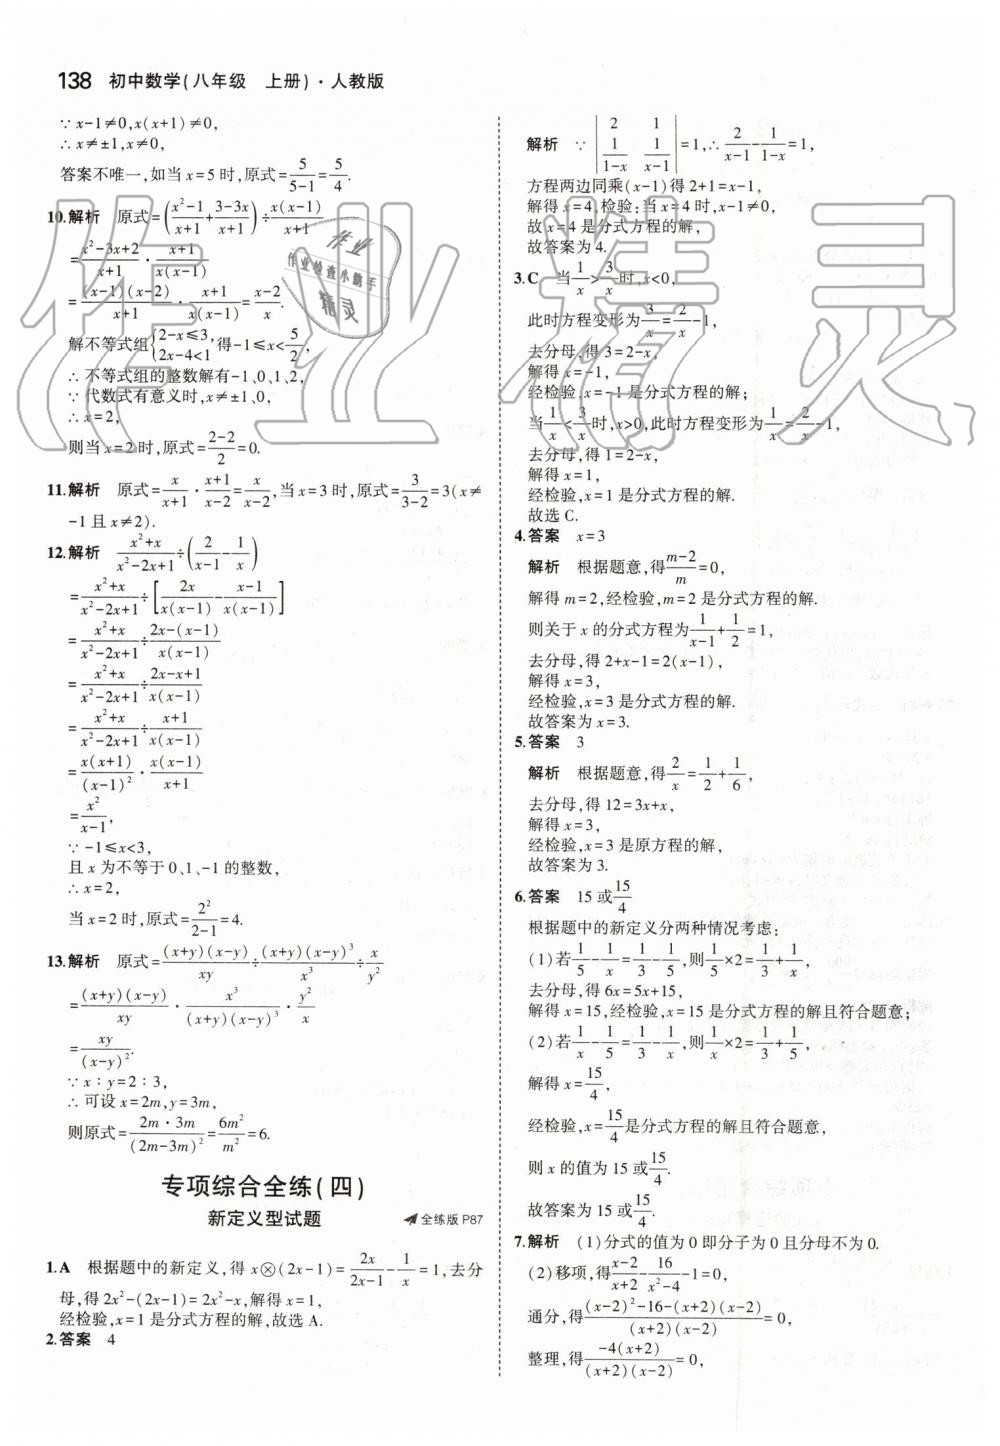 138 初中数学(八年级 上册)·人教版
∵ x-1≠0,x(x+1)≠0,
∴ x≠±1,x≠0,
答案不唯一,如当 x=5 时,原式=5/(5-1)=5/4.
10.解析 原式=((x²-1)/(x+1)+(3-3x)/(x+1))÷(x(x-1))/(x+1)
=(x²-3x+2)/(x+1)·(x+1)/(x(x-1))
=((x-1)(x-2))/(x+1)·(x+1)/(x(x-1))=(x-2)/x.
解不等式组{2-x≤3, 2x-4<1,得-1≤x<5/2,
∴ 不等式组的整数解有-1、0、1、2,
∵ 代数式有意义时,x≠±1、0,
∴ x=2,
则当 x=2 时,原式=(2-2)/2=0.
11.解析 原式=x/(x+1)·(x+1)/(x-2)=x/(x-2),当 x=3 时,原式=3/(3-2)=3(x≠
-1 且 x≠2).
12.解析 (x²+x)/(x²-2x+1)÷(2/(x-1)-1/x)
=(x²+x)/(x²-2x+1)÷[2x/(x(x-1))-(x-1)/(x(x-1))]
=(x²+x)/(x²-2x+1)÷(2x-(x-1))/(x(x-1))
=(x²+x)/(x²-2x+1)÷(2x-x+1)/(x(x-1))
=(x²+x)/(x²-2x+1)÷(x+1)/(x(x-1))
=(x(x+1))/(x-1)²·(x(x-1))/(x+1)
=x²/(x-1),
∵ -1≤x<3,
且 x 为不等于 0、1、-1 的整数,
∴ x=2,
当 x=2 时,原式=2²/(2-1)=4.
13.解析 原式=((x+y)(x-y))/(xy)÷((x+y)(x-y)³)/x³÷x/y²
=((x+y)(x-y))/(xy)·x³/((x+y)(x-y)³)·y²/x
=xy/(x-y)².
∵ x∶y=2∶3,
∴ 可设 x=2m,y=3m,
则原式=(2m·3m)/(2m-3m)²=6m²/m²=6.
专项综合全练(四)
新定义型试题 全练版 P87
1.A 根据题中的新定义,得 x⊗(2x-1)=2x/(2x-1)-1/x=1,去分
母,得 2x²-(2x-1)=2x²-x,解得 x=1,
经检验,x=1 是分式方程的解,故选 A.
2.答案 4
解析 ∵ |2 1; 1/(1-x) 1/(x-1)|=1,∴ 2/(x-1)-1/(1-x)=1,
方程两边同乘(x-1)得 2+1=x-1,
解得 x=4,检验:当 x=4 时,x-1≠0,
故 x=4 是分式方程的解,
故答案为 4.
3.C 当1/x>3/x时,x<0,
此时方程变形为3/x=2/x-1,
去分母,得 3=2-x,
解得 x=-1,
经检验,x=-1 是分式方程的解;
当1/x<3/x时,x>0,此时方程变形为1/x=2/x-1,
去分母,得 1=2-x,
解得 x=1,
经检验,x=1 是分式方程的解.
故选 C.
4.答案 x=3
解析 根据题意,得(m-2)/m=0,
解得 m=2,经检验,m=2 是分式方程的解.
则关于 x 的分式方程为1/(x-1)+1/2=1,
去分母,得 2+x-1=2(x-1),
解得 x=3,
经检验,x=3 是分式方程的解.
故答案为 x=3.
5.答案 3
解析 根据题意,得2/x=1/2+1/6,
去分母,得 12=3x+x,
解得 x=3,
经检验,x=3 是原方程的解,
故答案为 3.
6.答案 15 或15/4
根据题中的新定义分两种情况考虑:
(1)若1/5-1/x=1/3-1/5,则1/5×2=1/3+1/x,
去分母,得 6x=5x+15,
解得 x=15,经检验,x=15 是分式方程的解且符合题意;
(2)若1/x-1/5=1/3-1/x,则1/x×2=1/3+1/5,
解得 x=15/4,
经检验,x=15/4是分式方程的解且符合题意,
则 x 的值为 15 或15/4.
故答案为 15 或15/4.
7.解析 (1)分式的值为 0 即分子为 0 且分母不为 0.
(2)移项,得(x-2)/(x+2)-16/(x²-4)-1=0,
通分,得((x-2)²-16-(x+2)(x-2))/((x+2)(x-2))=0,
整理,得(-4(x+2))/((x+2)(x-2))=0,
作业精灵
作业
作业检查小助手
精灵